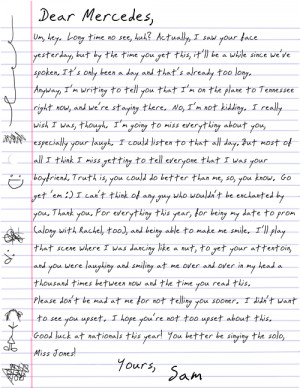 Dear Mercedes,
Um, hey. Long time no see, huh? Actually, I saw your face
yesterday, but by the time you get this, it'll be a while since we've
spoken. It's only been a day and that's already too long.
Anyway, I'm writing to tell you that I'm on the plane to Tennessee
right now, and we're staying there. No, I'm not kidding. I really
wish I was, though. I'm going to miss everything about you,
especially your laugh. I could listen to that all day. But most of
all I think I miss getting to tell everyone that I was your
boyfriend. Truth is, you could do better than me, so, you know. Go
get 'em :) I can't think of any guy who wouldn't be enchanted by
you. Thank you. For everything this year, for being my date to prom
(along with Rachel, too), and being able to make me smile. I'll play
that scene where I was dancing like a nut, to get your attentoin,
and you were laughing and smiling at me over and over in my head a
thousand times between now and the time you read this.
Please don't be mad at me for not telling you sooner. I didn't want
to see you upset. I hope you're not too upset about this.
Good luck at nationals this year! You better be singing the solo,
Miss Jones!
Yours,
Sam